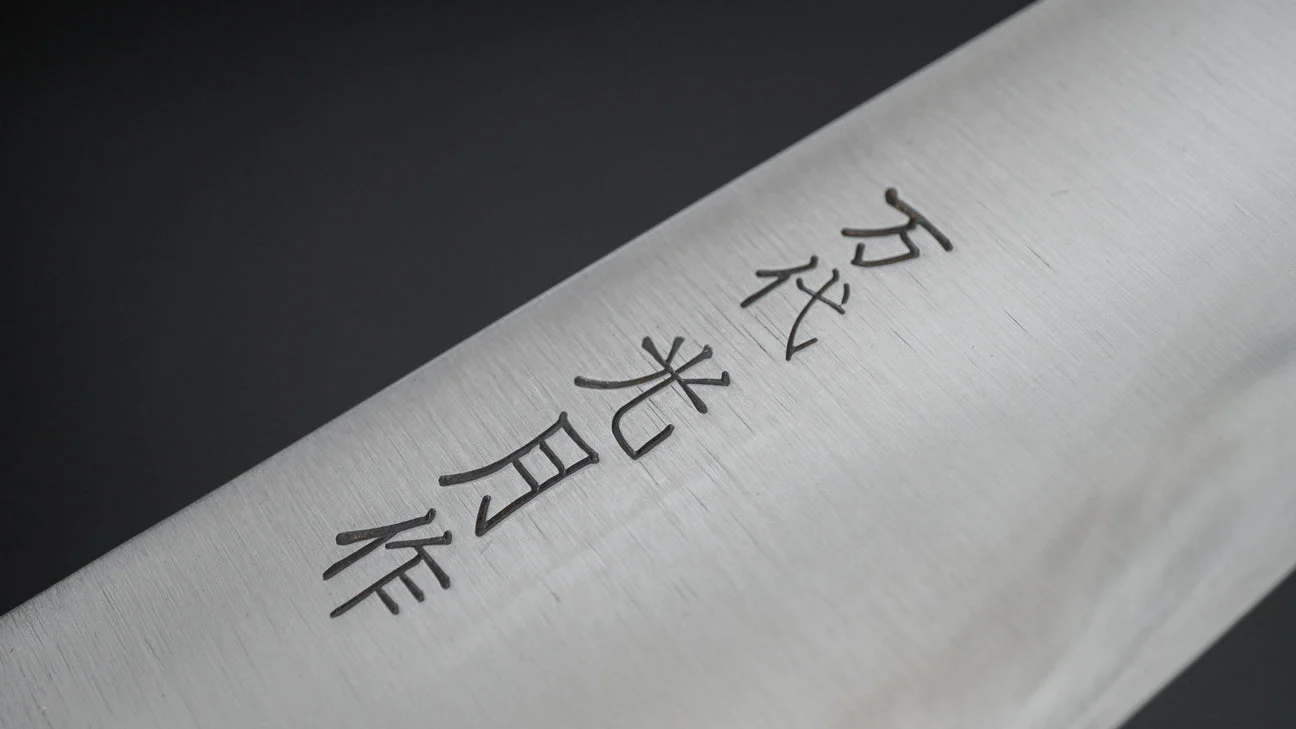 万代光月作